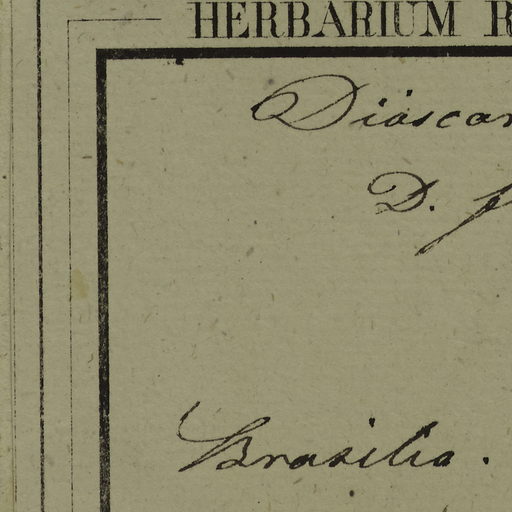 HERBARIUM R
Dioscor
D. p
Brasilia.